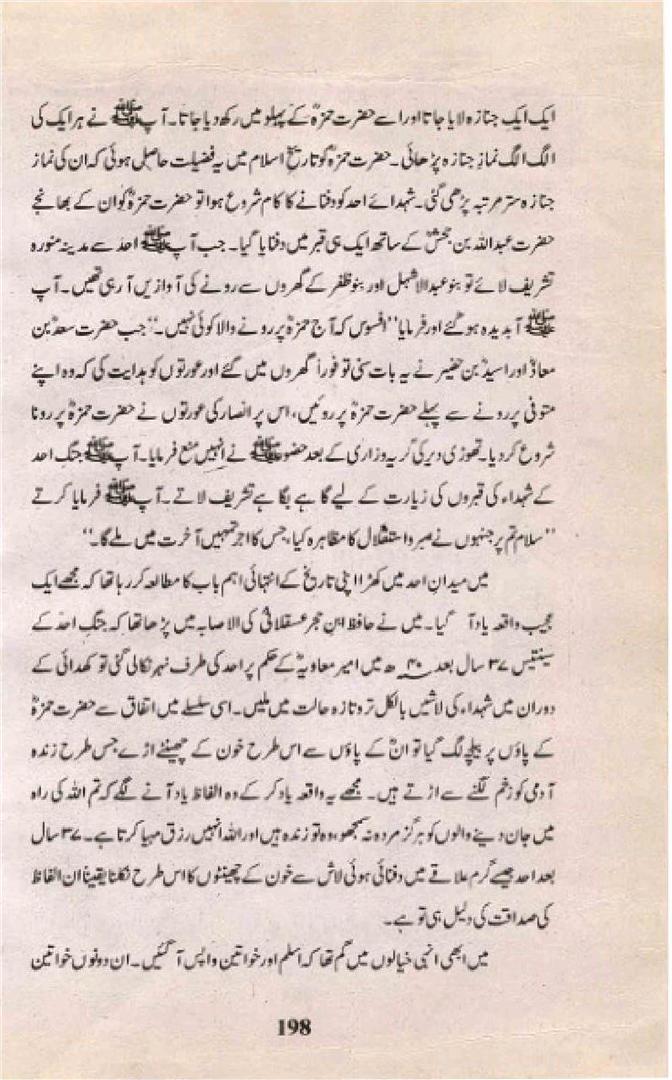 ایک ایک جنازہ لایا جاتا اور اسے حضرت حمزہؓ کے پہلو میں رکھ دیا جاتا۔ آپ ﷺ نے ہر ایک کی
الگ الگ نمازِ جنازہ پڑھائی۔ حضرت حمزہؓ کو تاریخِ اسلام میں یہ فضیلت حاصل ہوئی کہ ان کی نماز
جنازہ ستر مرتبہ پڑھی گئی۔ شہدائے احد کو دفنانے کا کام شروع ہوا تو حضرت حمزہؓ کو ان کے بھانجے
حضرت عبداللہ بن جحشؓ کے ساتھ ایک ہی قبر میں دفنایا گیا۔ جب آپ ﷺ احد سے مدینہ منورہ
تشریف لائے تو بنو عبدالاشہل اور بنو ظفر کے گھروں سے رونے کی آوازیں آ رہی تھیں۔ آپ
ﷺ آبدیدہ ہو گئے اور فرمایا ”افسوس کہ آج حمزہؓ پر رونے والا کوئی نہیں۔“ جب حضرت سعدؓ بن
معاذؓ اور اسیدؓ بن حضیر نے یہ بات سنی تو فوراً گھروں میں گئے اور عورتوں کو ہدایت کی کہ وہ اپنے
متوفی پر رونے سے پہلے حضرت حمزہؓ پر روئیں، اس پر انصار کی عورتوں نے حضرت حمزہؓ پر رونا
شروع کر دیا۔ تھوڑی دیر کی گریہ وزاری کے بعد حضور ﷺ نے انہیں منع فرمایا۔ آپ ﷺ جنگ احد
کے شہداء کی قبروں کی زیارت کے لیے گاہے بگاہے تشریف لاتے۔ آپ ﷺ فرمایا کرتے
”سلام تم پر جنہوں نے صبر و استقلال کا مظاہرہ کیا، جس کا اجر تمہیں آخرت میں ملے گا۔“
میں میدان احد میں کھڑا اپنی تاریخ کے انتہائی اہم باب کا مطالعہ کر رہا تھا کہ مجھے ایک
عجیب واقعہ یاد آ گیا۔ میں نے حافظ ابن حجر عسقلانیؒ کی الاصابہ میں پڑھا تھا کہ جنگِ احد کے
سینتیس ۳۷ سال بعد ۴۰ھ میں امیر معاویہؓ کے حکم پر احد کی طرف نہر نکالی گئی تو کھدائی کے
دوران میں شہداء کی لاشیں بالکل تروتازہ حالت میں ملیں۔ اسی سلسلے میں اتفاق سے حضرت حمزہؓ
کے پاؤں پر بیلچہ لگ گیا تو انؓ کے پاؤں سے اس طرح خون کے چھینٹے اڑے جس طرح زندہ
آدمی کو زخم لگنے سے اڑتے ہیں۔ مجھے یہ واقعہ یاد کر کے وہ الفاظ یاد آنے لگے کہ تم اللہ کی راہ
میں جان دینے والوں کو ہرگز مردہ نہ سمجھو، وہ تو زندہ ہیں اور اللہ انہیں رزق مہیا کرتا ہے۔ ۳۷ سال
بعد احد جیسے گرم علاقے میں دفنائی ہوئی لاش سے خون کے چھینٹوں کا اس طرح نکلنا یقیناً ان الفاظ
کی صداقت کی دلیل ہی تو ہے۔
میں ابھی انہی خیالوں میں گم تھا کہ اسلم اور خواتین واپس آ گئیں۔ ان دونوں خواتین
198